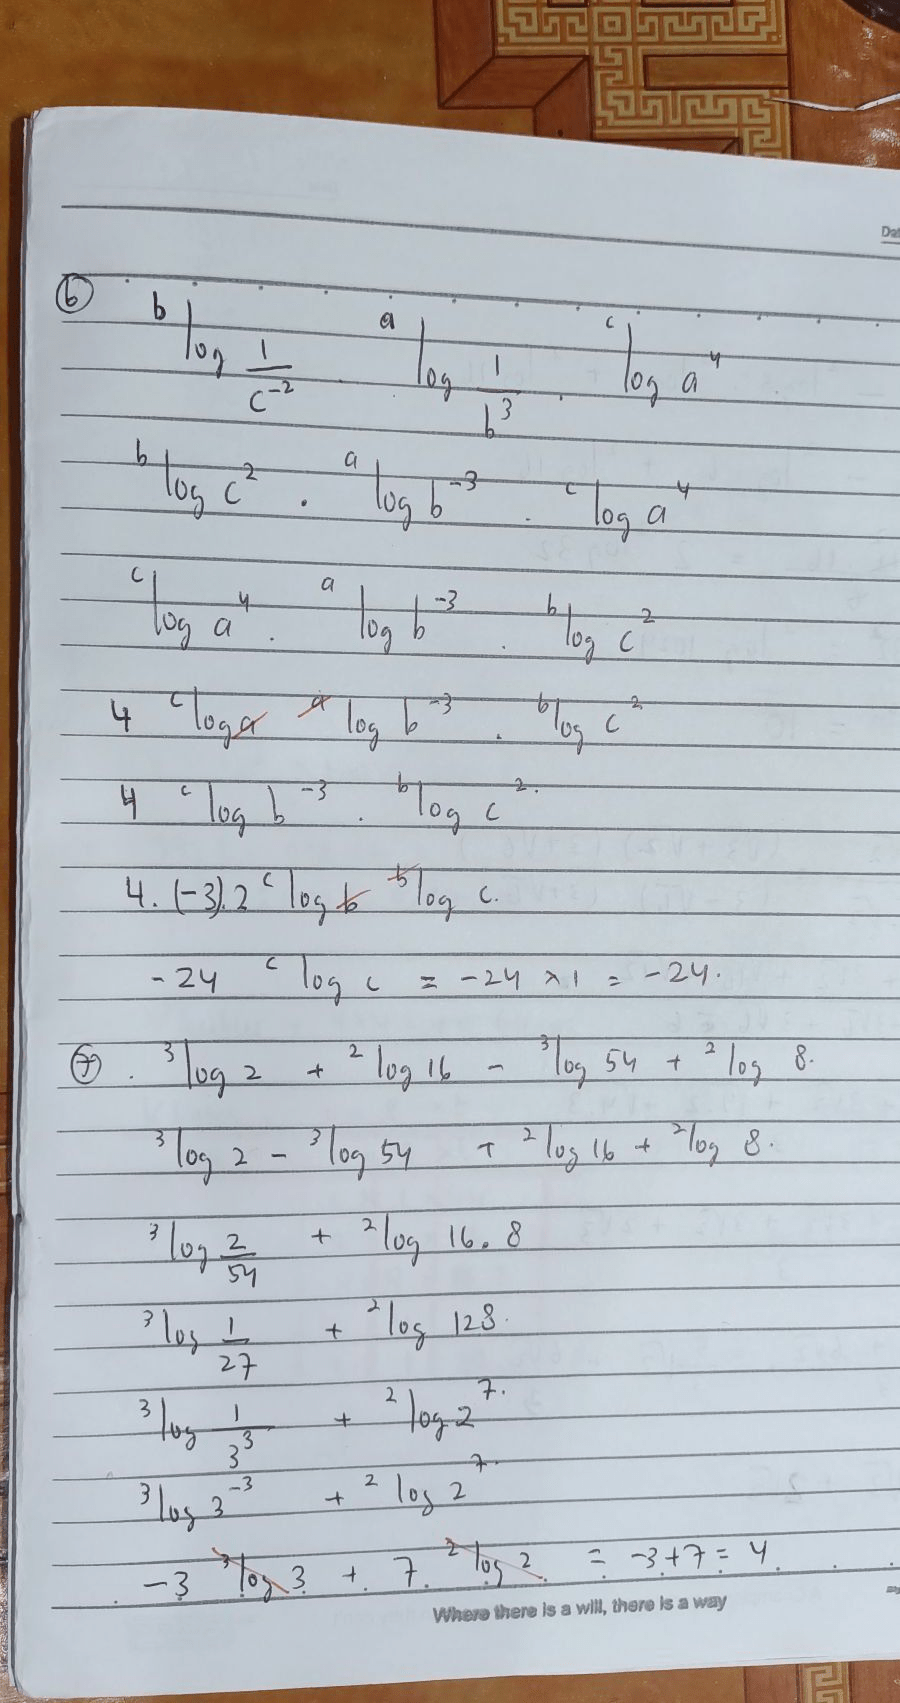 Dat
⑥ ᵇlog 1/c⁻² . ᵃlog 1/b³ . ᶜlog a⁴
ᵇlog c² . ᵃlog b⁻³ . ᶜlog a⁴
ᶜlog a⁴ . ᵃlog b⁻³ . ᵇlog c²
4 ᶜlog a ᵃlog b⁻³ . ᵇlog c²
4 ᶜlog b⁻³ . ᵇlog c².
4. (-3).2 ᶜlog b ᵇlog c.
-24 ᶜlog c = -24 × 1 = -24.
⑦ . ³log 2 + ²log 16 - ³log 54 + ²log 8.
³log 2 - ³log 54 + ²log 16 + ²log 8.
³log 2/54 + ²log 16 . 8
³log 1/27 + ²log 128.
³log 1/3³ + ²log 2⁷.
³log 3⁻³ + ²log 2⁷.
-3 ³log 3 + 7. ²log 2 = -3+7 = 4
Where there is a will, there is a way